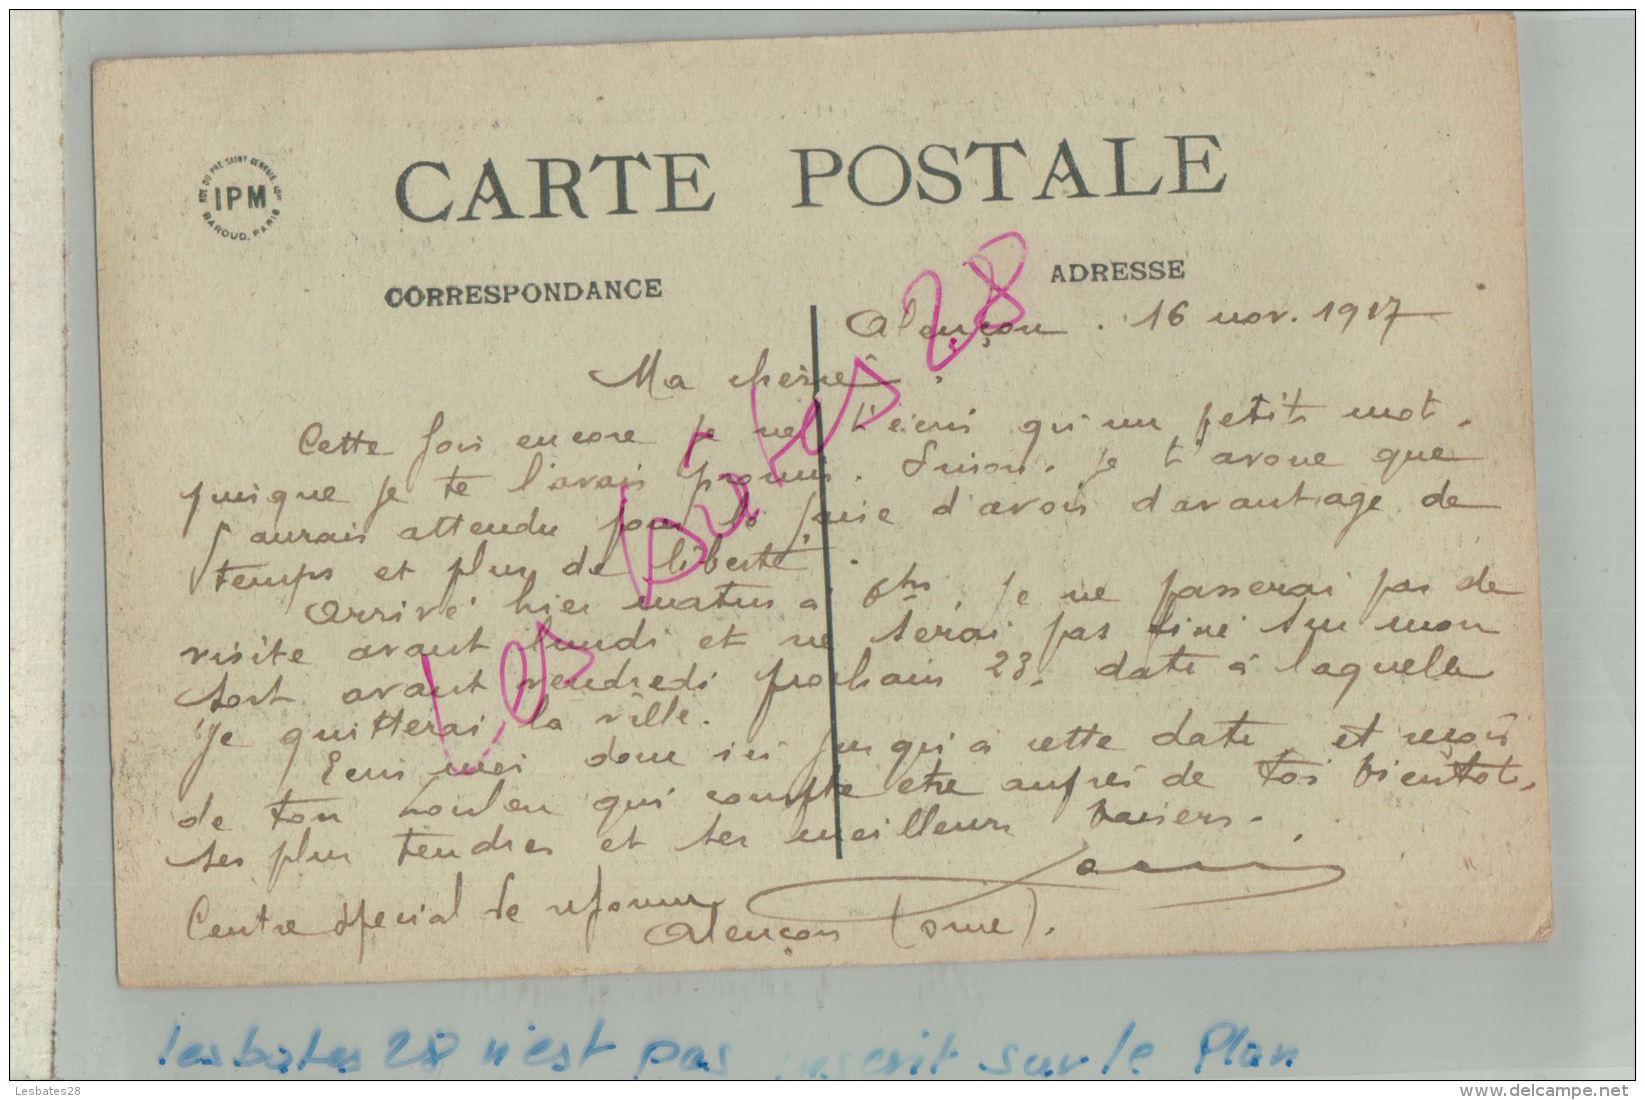 CARTE POSTALE
RUE DU PRÉ SAINT GERVAIS
IPM
BAROUD, PARIS
CORRESPONDANCE
ADRESSE
Alençon. 16 nov. 1917
Ma chérie
Cette fois encore je ne t'écris qu'un petit mot.
puisque je te l'avais promis. Sinon. je t'avoue que
j'aurais attendu pour le faire d'avoir d'avantage de
temps et plus de liberté.
Arrivé hier matin à 6hrs, je ne passerai pas de
visite avant lundi et ne serai pas fixé sur mon
sort avant vendredi prochain 23. date à laquelle
je quitterai la ville.
Ecris moi donc ici jusqu'à cette date et reçois
de ton Loulou qui compte être auprès de toi bientôt.
ses plus tendres et ses meilleurs baisers.
Centre spécial de réforme
Alençon (Orne).
Les bates 28
lesbates 28 n'est pas inscrit sur le Plan
Lesbates28
www.delcampe.net